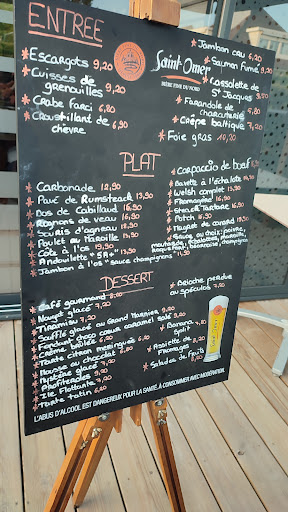 ENTREE
* Escargots 6,90
* Cuisses de grenouilles 9,20
* Crabe farci 6,20
* Croustillant de chèvre 6,90
Saint-Omer
BIÈRE FINE DU NORD
* Jambon cru 6,20
* Saumon Fumé 9,20
* Cassolette de St Jacques 9,20
* Farandole de charcuteries 9,20
* Crêpe baltique 7,20
* Foie gras 10,20
PLAT
* Carbonade 12,90
* Pavé de Rumsteack 13,90
* Dos de Cabillaud 16,90
* Rognons de veau 16,90
* Souris d'agneau 18,90
* Poulet au Maroille 13,90
* Côte à l'os
* Andouillette "5A"
* Jambon à l'os "sauce champignons"
* Carpaccio de bœuf
* Bavette à l'échalote
* Welsh complet 13,90
* Steack Tartare 16,90
* Potch
* Magret de canard 19,90
* Sauce au choix: poivre,
DESSERT
* Café gourmand
* Nougat glacé
* Tiramisu
* Soufflé glacé au Grand Marnier
* Fondant choco coeur caramel salé
* Crème brûlée
* Tarte citron meringuée
* Mousse au chocolat
* Mystère glacé
* Profiteroles
* Ile Flottante
* Tarte tatin 6,20
* Brioche perdue au spéculos
* Banana Split
* Assiette de Fromages
* Salade de fruits
L'ABUS D'ALCOOL EST DANGEREUX POUR LA SANTÉ, À CONSOMMER AVEC MODÉRATION.